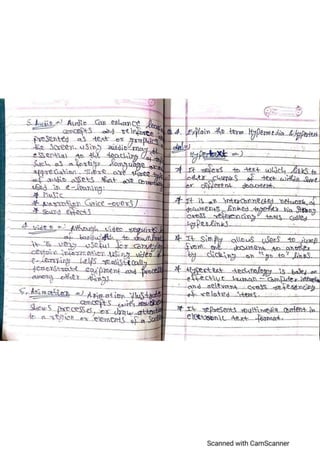 3. Audio :- Audio can enhance
concepts and reinforce
presented as text or graphics
the screen. Using audio may be
essential to the teaching
such as a foreign language
appreciation. There are three types
of audio assets that are
used in e-learning:
* Music
* Narration (voice-overs)
* Sound effects
4. Video :- Although video requires
of bandwidth to download
it is very useful for
certain information. Using video
e-learning helps
demonstrate equipment and processes
among other things.
5. Animation :- Animation illustrates
concepts with
shows processes, or draw attention
to a region or elements of a screen
Q.4. Explain the term Hypermedia & Hypertext
Hypertext =>
* It refers to text which links to
other chunks of text within same
or different document.
* It is an interconnected network of
documents linked together via
cross referencing tools called
hyperlinks.
* It simply allows users to jump
from one document to another
by clicking on "go to" links.
* Hypertext technology is
effective human - computer
and relevant cross referencing
of related items.
* It represents multimedia content in
electronic text format.
Scanned with CamScanner